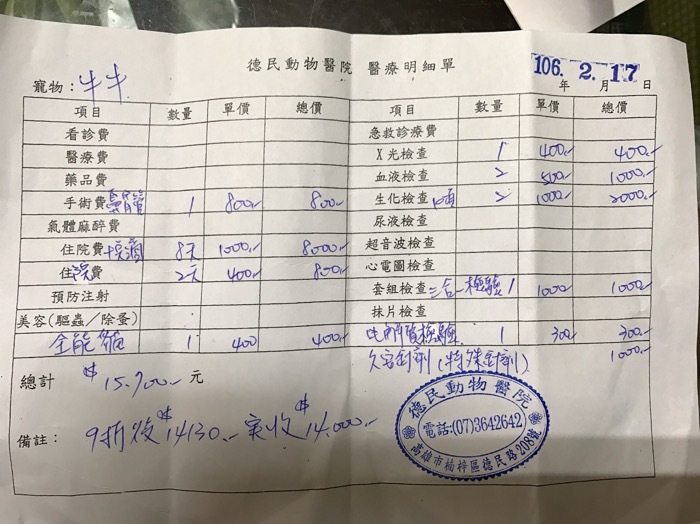 德民動物醫院 醫療明細單
106. 2. 17
年 月 日
寵物：牛牛
項目 數量 單價 總價 項目 數量 單價 總價
看診費 急救診療費
醫療費 X光檢查 1 400 400
藥品費 血液檢查 2 500 1000
手術費 鼻胃管 1 800 800 生化檢查 2 1000 2000
氣體麻醉費 尿液檢查
住院費+點滴 8天 1000 8000 超音波檢查
住院費 2天 400 800 心電圖檢查
預防注射 套組檢查 三合一檢驗 1 1000 1000
美容(驅蟲／除蚤) 抹片檢查
全能貓 1 400 400 電解質檢驗 1 300 300
針劑(特殊針劑) 1000
總計 $15,700 元
備註： 9折後$14130 實收$14,000
德民動物醫院
電話:(07)3642642
高雄市楠梓區德民路208號